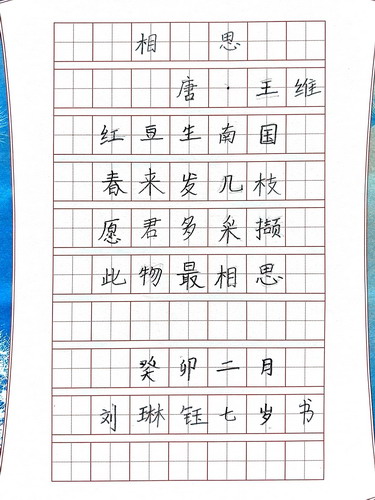 相思
唐·王维
红豆生南国
春来发几枝
愿君多采撷
此物最相思
癸卯二月
刘琳钰七岁书